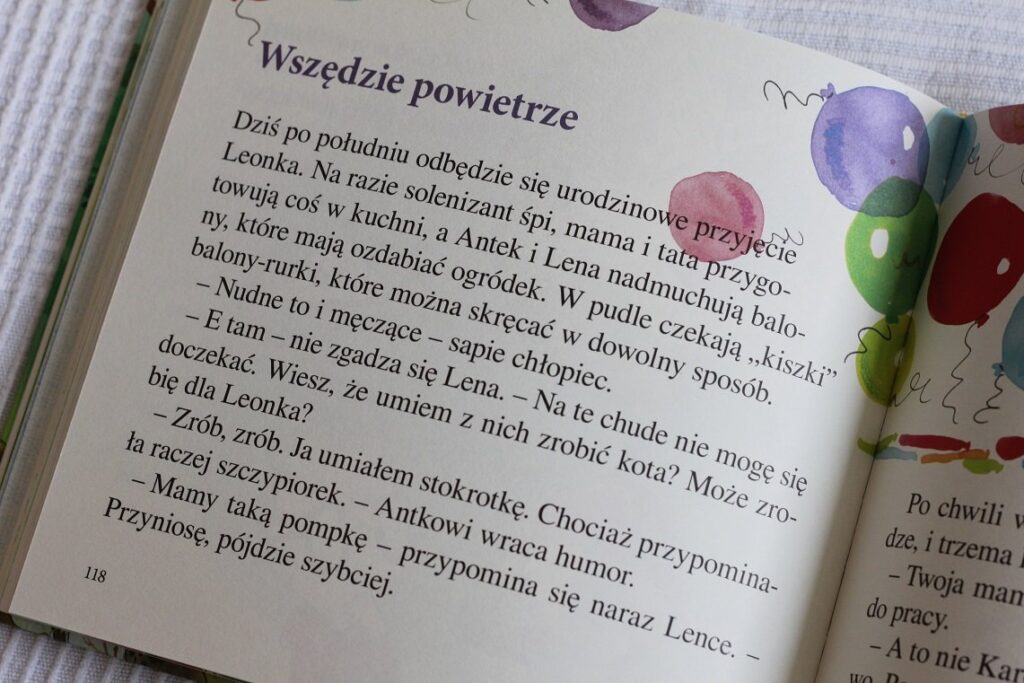 Wszędzie powietrze
Dziś po południu odbędzie się urodzinowe przyjęcie
Leonka. Na razie solenizant śpi, mama i tata przygo-
towują coś w kuchni, a Antek i Lena nadmuchują balo-
ny, które mają ozdabiać ogródek. W pudle czekają „kiszki”
balony-rurki, które można skręcać w dowolny sposób.
– Nudne to i męczące – sapie chłopiec.
– E tam – nie zgadza się Lena. – Na te chude nie mogę się
doczekać. Wiesz, że umiem z nich zrobić kota? Może zro-
bię dla Leonka?
– Zrób, zrób. Ja umiałem stokrotkę. Chociaż przypomina-
ła raczej szczypiorek. – Antkowi wraca humor.
– Mamy taką pompkę – przypomina się naraz Lence. –
Przyniosę, pójdzie szybciej.
118
Po chwili
dze, i trzema
– Twoja
do pracy.
– A to nie